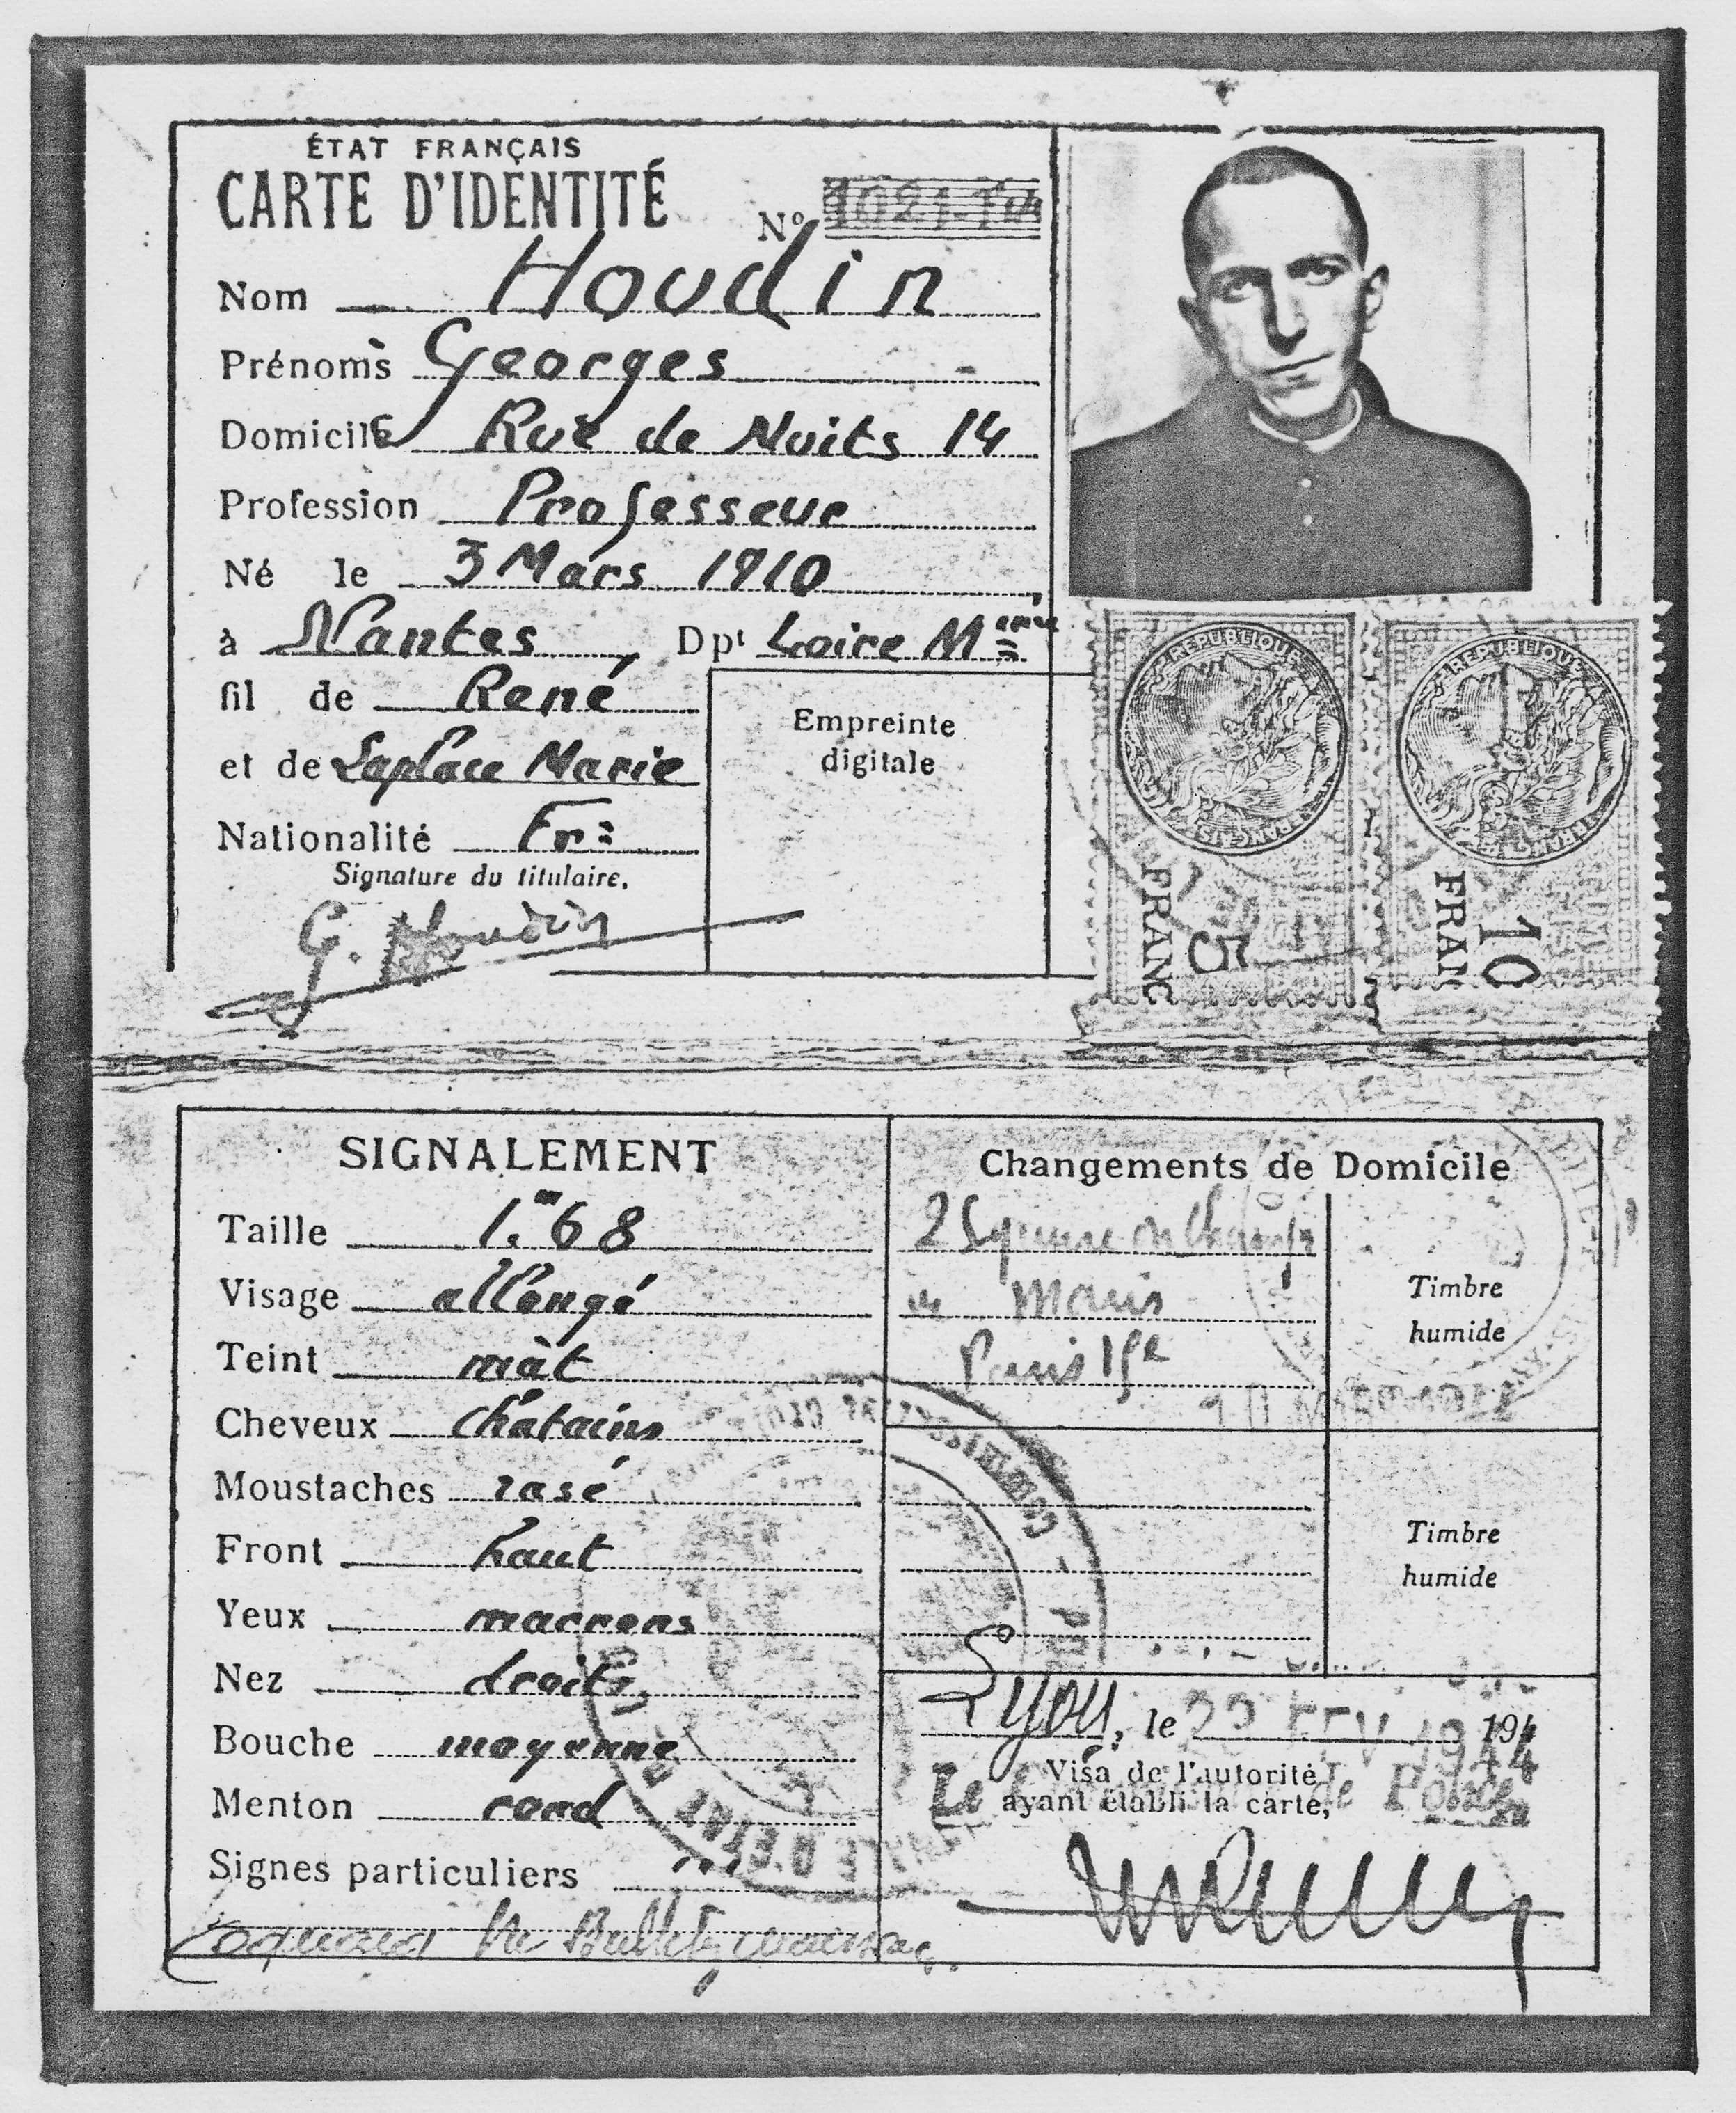 ÉTAT FRANÇAIS
CARTE D'IDENTITÉ
Nº 1021.14
Nom Houdin
Prénoms Georges
Domicile Rue de Nuits 14
Profession Professeur
Né le 3 Mars 1910
à Nantes Dpt Loire Mre
fil de René
et de Laplace Marie
Nationalité Frse
Signature du titulaire,
G. Houdin
Empreinte
digitale
RÉPUBLIQUE FRANÇAISE
5 FRANC
RÉPUBLIQUE FRANÇAISE
10 FRAN
SIGNALEMENT
Taille 1.m68
Visage allongé
Teint màt
Cheveux chatains
Moustaches rasé
Front haut
Yeux marrons
Nez droit
Bouche moyenne
Menton rond
Signes particuliers ...
Changements de Domicile
2 Square
Paris 15e
Timbre
humide
Timbre
humide
Lyon, le 194
FEV 1944
Visa de l'autorité
ayant établi la carte,
Le de Police